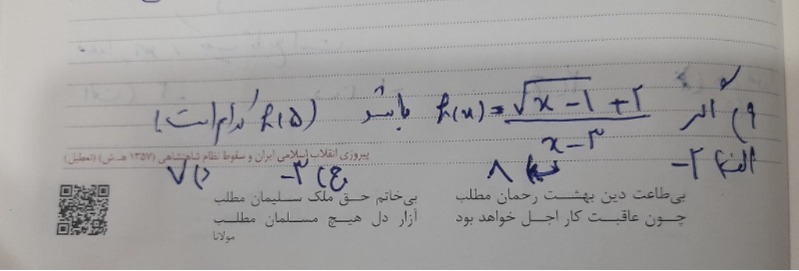 ۹) اگر h(x) = (√(x-1) + 2) / (x-3) باشد h(5) کدام است؟
پیروزی انقلاب اسلامی ایران و سقوط نظام شاهنشاهی (۱۳۵۷ هـ.ش) (تعطیل)
الف) -2 ب) 8 ج) -3 د) 7
بی‌طاعت دین بهشت رحمان مطلب
بی‌خاتم حق ملک سلیمان مطلب
چون عاقبت کار اجل خواهد بود
آزار دل هیچ مسلمان مطلب
مولانا